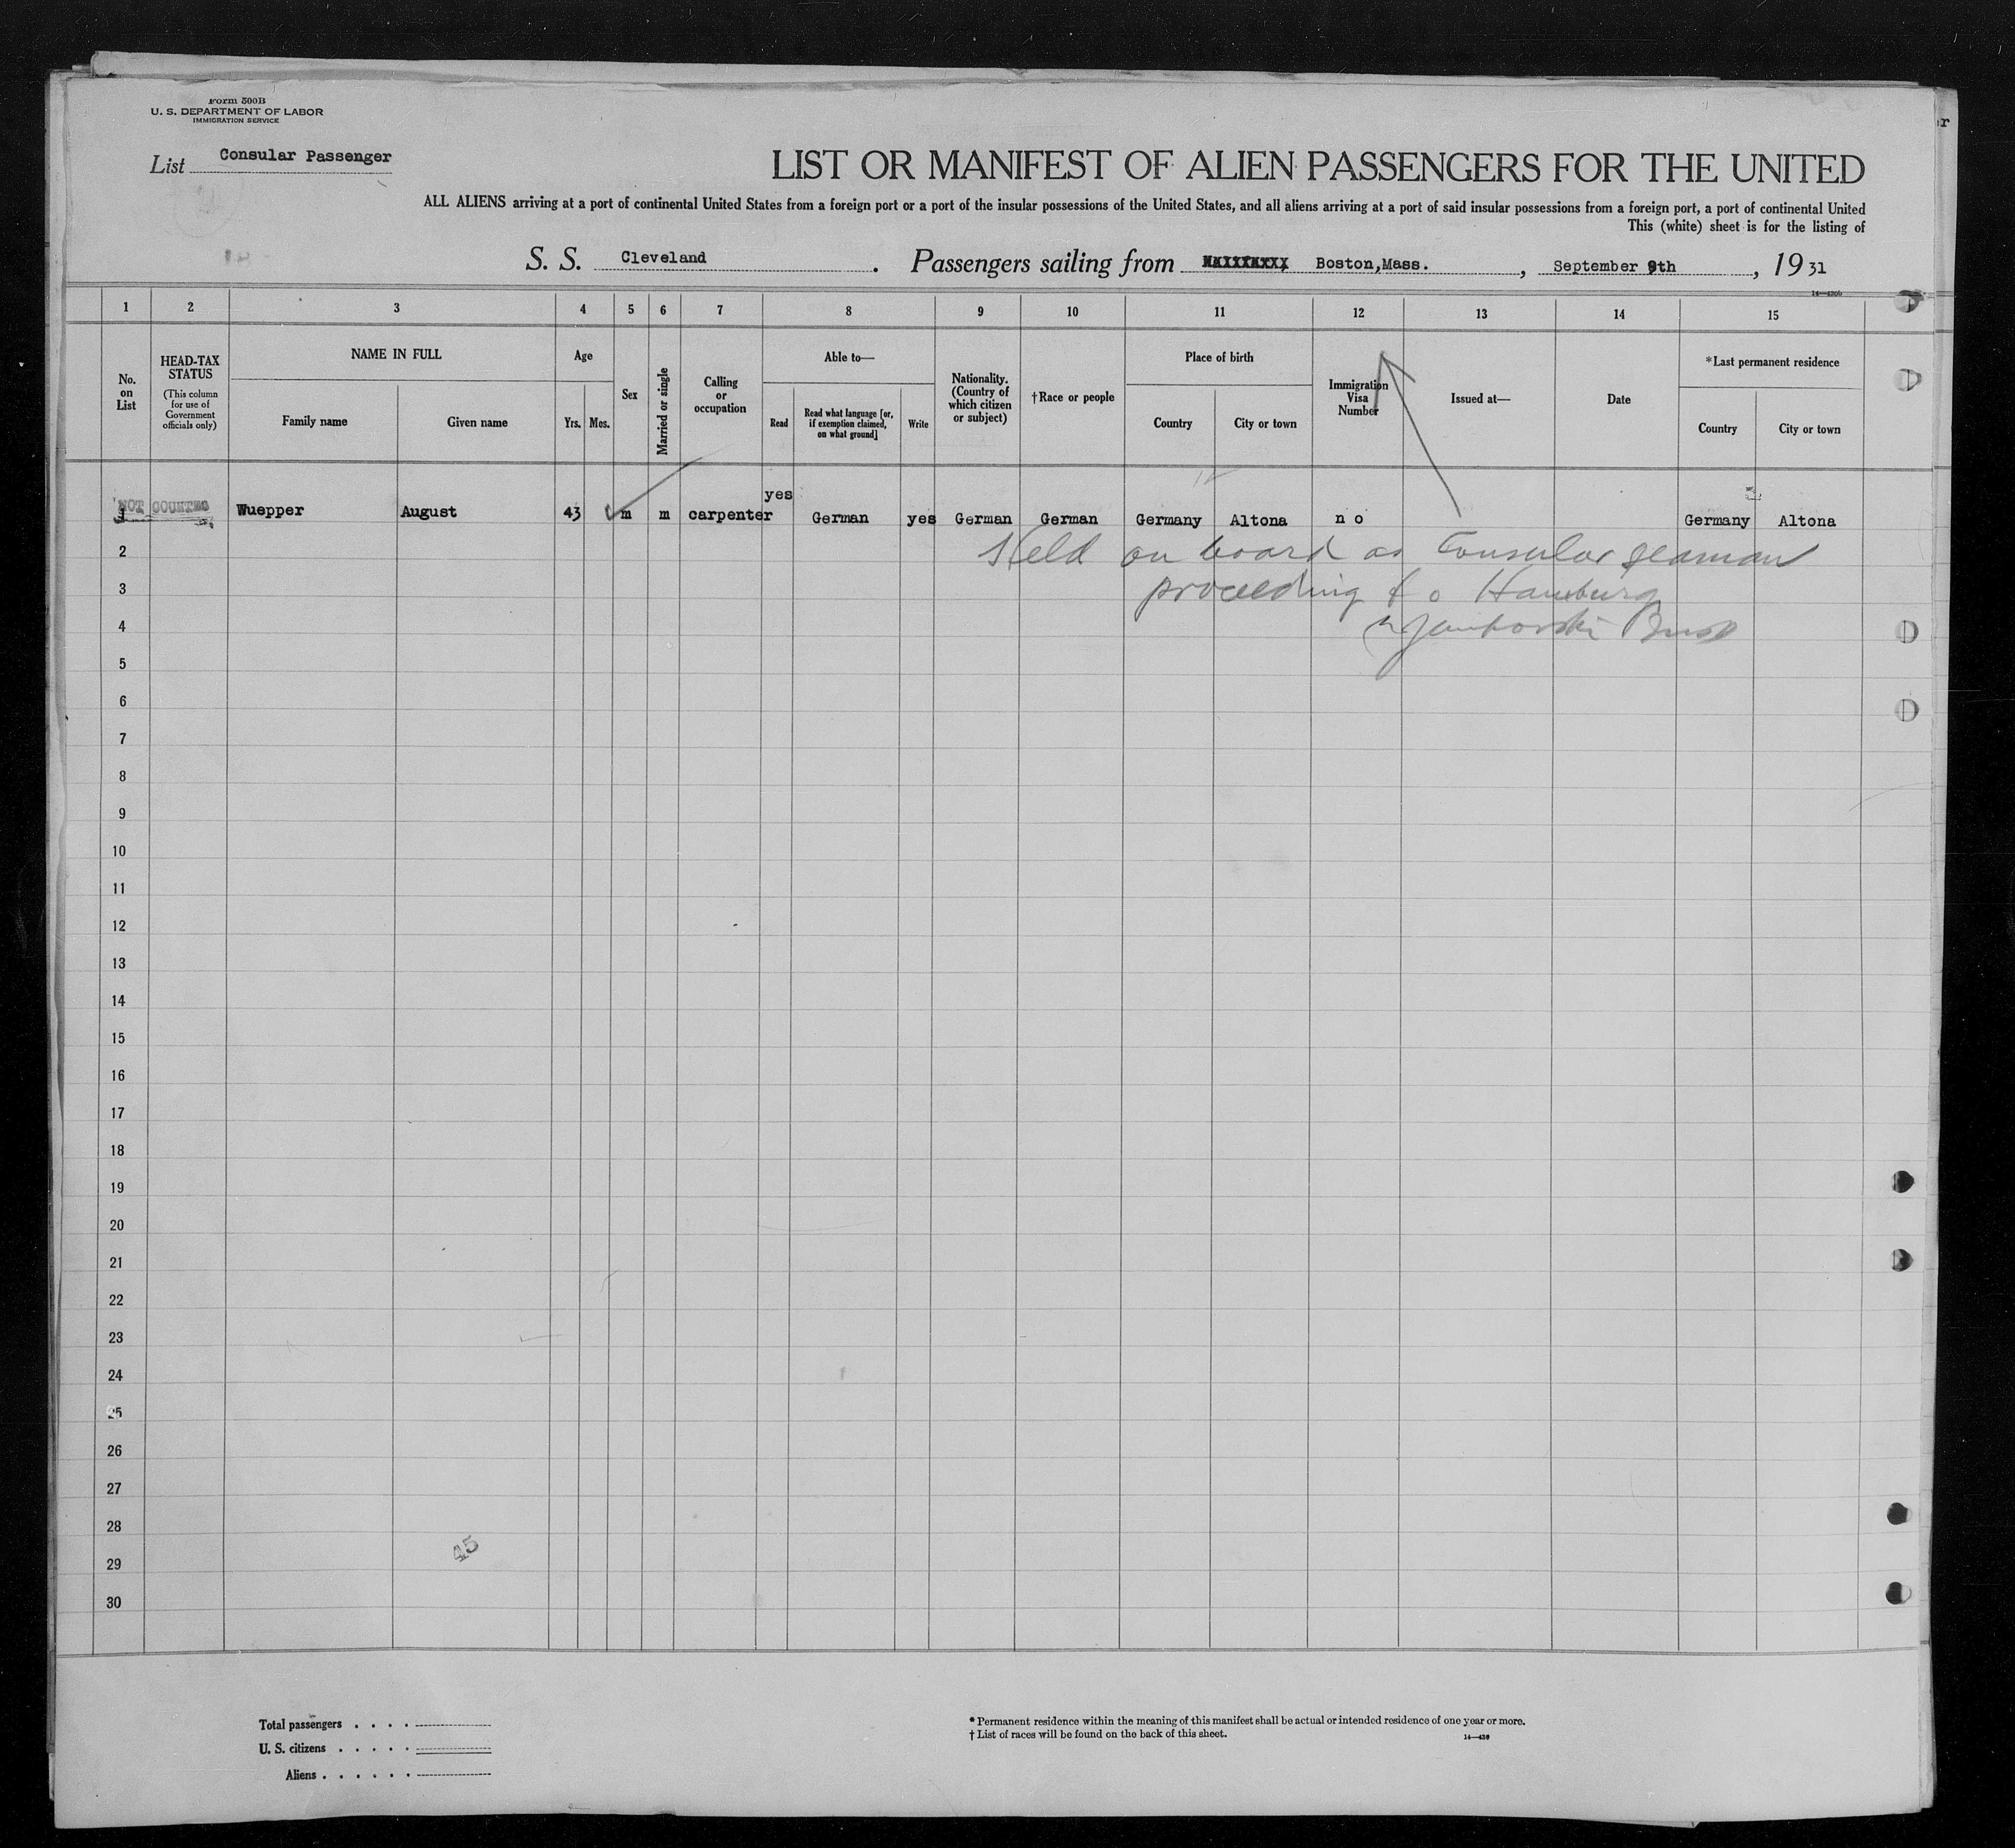 Form 500B
U. S. DEPARTMENT OF LABOR
IMMIGRATION SERVICE
List Consular Passenger
LIST OR MANIFEST OF ALIEN PASSENGERS FOR THE UNITED
ALL ALIENS arriving at a port of continental United States from a foreign port or a port of the insular possessions of the United States, and all aliens arriving at a port of said insular possessions from a foreign port, a port of continental United
This (white) sheet is for the listing of
S. S. Cleveland. Passengers sailing from Boston,Mass., September 9th, 1931
1 2 3 4 5 6 7 8 9 10 11 12 13 14 15
No. on List
HEAD-TAX STATUS
(This column for use of Government officials only)
NAME IN FULL
Family name
Given name
Age
Yrs. Mos.
Sex
Married or single
Calling or occupation
Able to—
Read
Read what language [or, if exemption claimed, on what ground]
Write
Nationality. (Country of which citizen or subject)
†Race or people
Place of birth
Country
City or town
Immigration Visa Number
Issued at—
Date
*Last permanent residence
Country
City or town
1 NOT COUNTED Wuepper August 43 m m carpenter yes German yes German German Germany Altona no Germany Altona
2 Held on board as Consular seaman
3 proceeding to Hamburg
4
5
6
7
8
9
10
11
12
13
14
15
16
17
18
19
20
21
22
23
24
25
26
27
28
45
29
30
Total passengers . . . .
U. S. citizens . . . . .
Aliens . . . . . .
* Permanent residence within the meaning of this manifest shall be actual or intended residence of one year or more.
† List of races will be found on the back of this sheet.
14—430